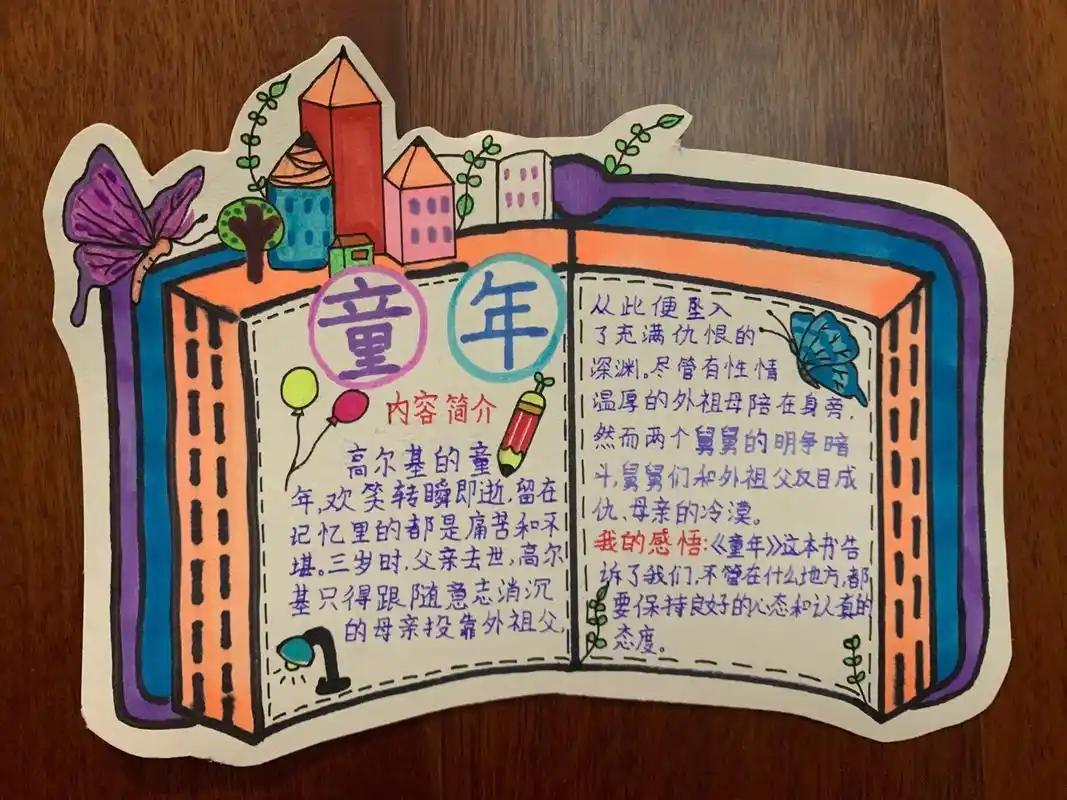 童年
内容简介
高尔基的童
年,欢笑转瞬即逝,留在
记忆里的都是痛苦和不
堪。三岁时,父亲去世,高尔
基只得跟随意志消沉
的母亲投靠外祖父,
从此便坠入
了充满仇恨的
深渊。尽管有性情
温厚的外祖母陪在身旁,
然而两个舅舅的明争暗
斗,舅舅们和外祖父反目成
仇、母亲的冷漠。
我的感悟:《童年》这本书告
诉了我们,不管在什么地方,都
要保持良好的心态和认真的
态度。